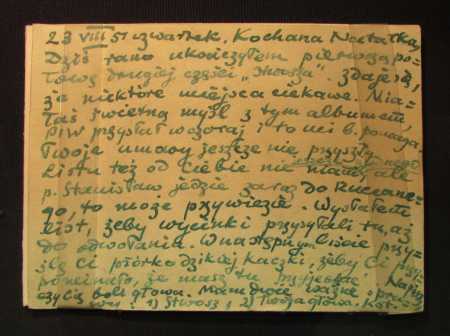 23 VIII 51 czwartek. Kochana Natalko,
Dziś rano ukończyłem pierwszą po-
łowę drugiej części „ ". Zdaje się,
że niektóre miejsca ciekawe. Mia-
łaś świetną myśl z tym albumem,
PIW przysłał wczoraj i to mi b. pomaga.
Twoje umowy jeszcze nie przyszły
Listu też od Ciebie nie miałem, ale
p. Stanisław jedzie zaraz do Ruciane-
go, to może przywiezie. Wysłałem
list, żeby wycinki przysyłali tu, aż
do odwołania. W następnym liście przy-
ślę Ci piórko dzikiej kaczki, żeby Ci przy-
pominało, że masz tu przyjechać. Napisz
czy Cię boli głowa. Mam dwie ważne
: 1) Starosz, 2) Twoja głowa.